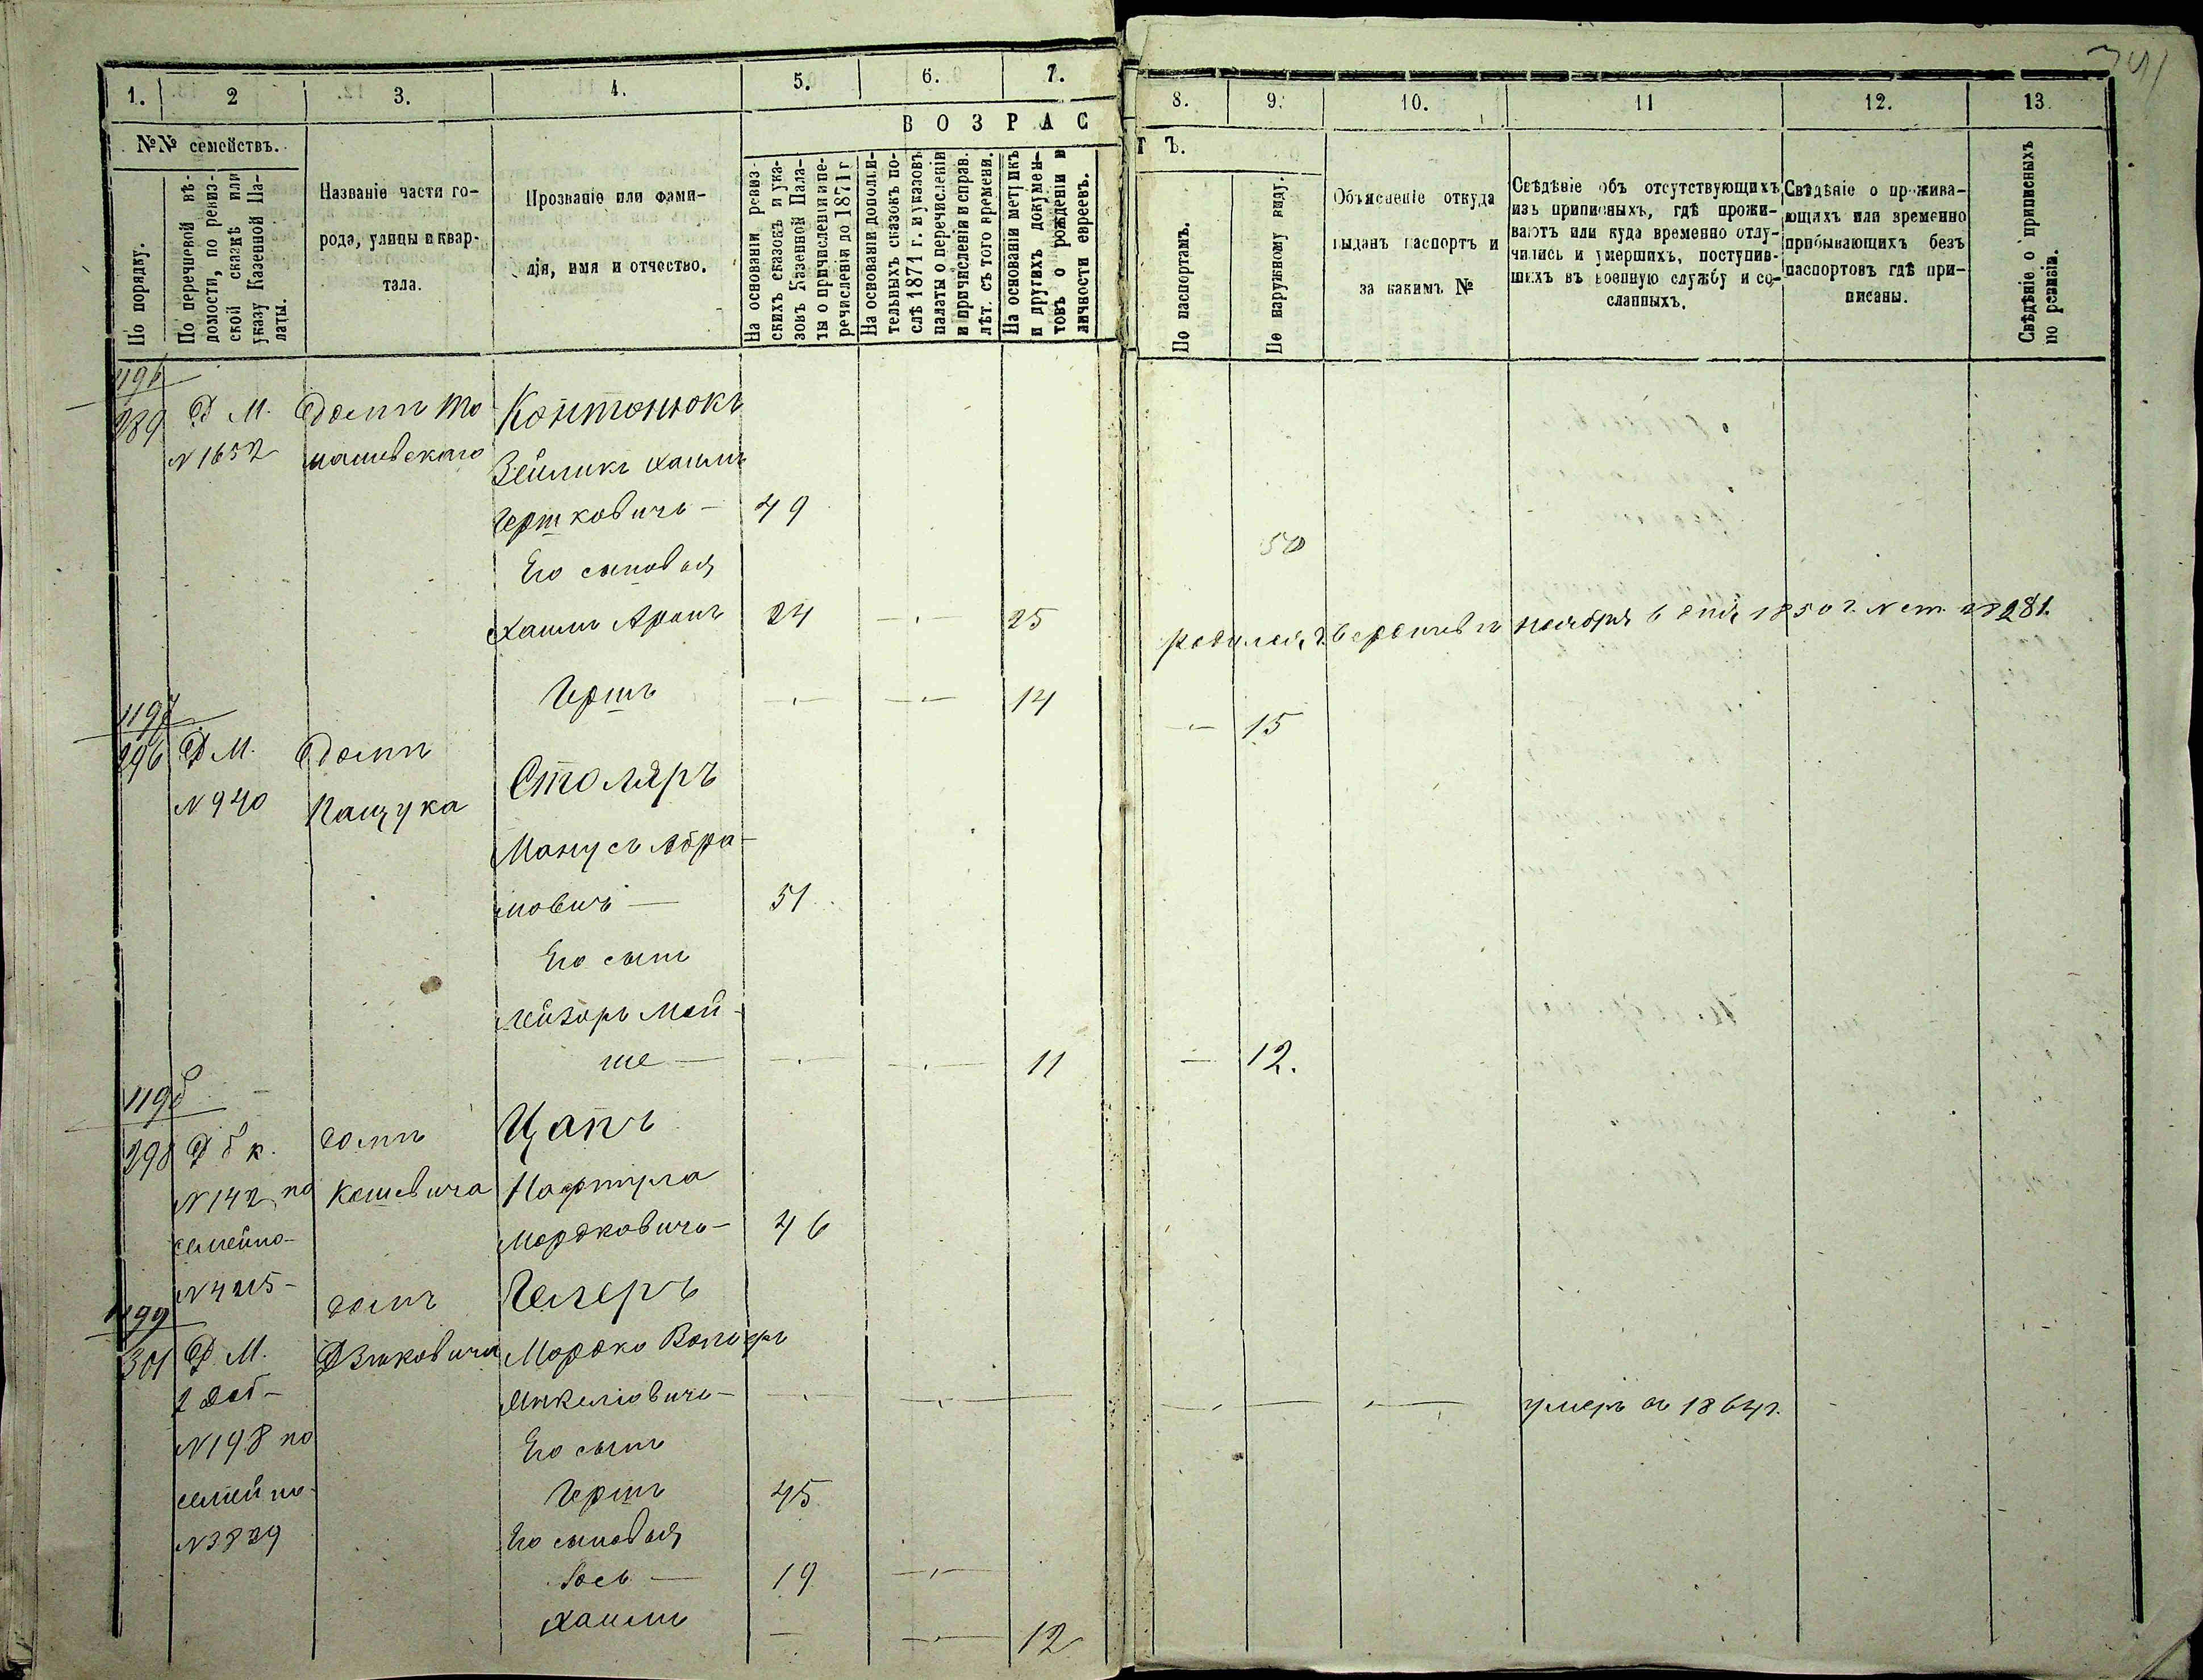 391
1. 2 3. 4. 5. 6. 7. 8. 9. 10. 11 12. 13.
В О З Р А С Т Ъ.
№№ семействъ.
По порядку.
По перечневой вѣ-
домости, по ревиз-
ской сказкѣ или
указу Казенной Па-
латы.
Названіе части го-
рода, улицы и квар-
тала.
Прозваніе или фами-
лія, имя и отчество.
На основаніи ревиз-
скихъ сказокъ и ука-
зовъ Казенной Пала-
ты о причисленіи и пе-
речисленіи до 1871 г
На основаніи дополни-
тельныхъ сказокъ по-
слѣ 1871 г. и указовъ
палаты о перечисленіи
и причисленіи и справ.
лѣт. съ того времени.
На основаніи метрикъ
и другихъ докумен-
товъ о рожденіи и
личности евреевъ.
По паспортамъ.
По наружному виду.
Объясненіе откуда
выданъ паспортъ и
за какимъ №
Свѣдѣніе объ отсутствующихъ
изъ приписныхъ, гдѣ прожи-
ваютъ или куда временно отлу-
чились и умершихъ, поступив-
шихъ въ военную службу и со-
сланныхъ.
Свѣдѣніе о прожива-
ющихъ или временно
прибывающихъ безъ
паспортовъ гдѣ при-
писаны.
Свѣдѣніе о приписныхъ
по ревизіи.
1196
289 Д М. домъ То Койтонюкъ
N 1652 машевскаго Зейликъ Хаимъ
Гершковичъ – 49 50
Его сыновья
Хаимъ Аронъ 24 — 25 родился, г. Бердичевъ ноября 6 дня 1850 г.
Гершъ — — 14 — 15
1197
296 Д М. домъ Столяръ
N 940 Пащука Манусъ Абра-
мовичъ — 51
Его сынъ
Лейзоръ Мой-
ше — — — 11 — 12.
1198
298 Д б к. домъ Цапъ
N 142 по Кошевича Нафтула
семейно- Мордковичъ – 46
N 4215 –
1199
домъ Гелеръ
301 Д. М. Дзиковича Мордко Вольфъ
2 доб – Янкеліовичъ – — — — — — умеръ въ 1864 г.
N 198 по Его сынъ
семейно- Гершъ 45
N 3829 Его сыновья
Іось — 19 —
Хаимъ — — 12